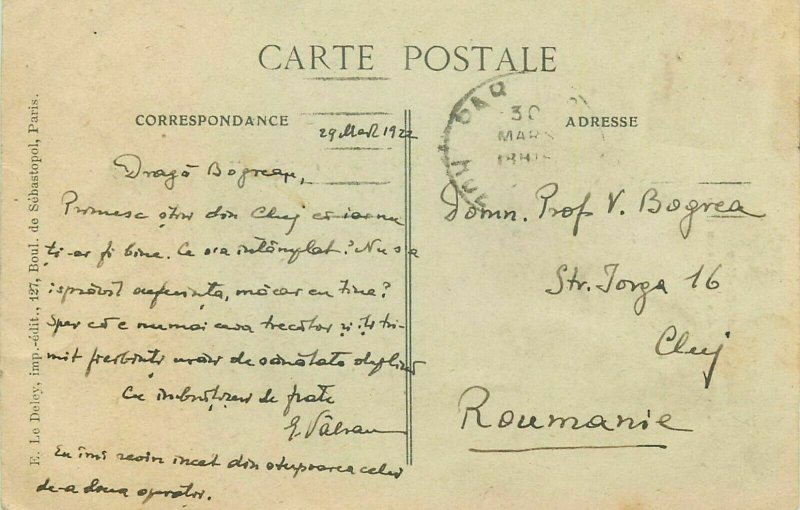 CARTE POSTALE
CORRESPONDANCE
ADRESSE
PAR
30
MARS
29 Mart 1922
Dragă Bogrea,
Primesc știri din Cluj că iar nu
ți-ar fi bine. Ce s'a întâmplat? Nu s'a
isprăvit suferința, măcar cu tine?
Sper că e numai ceva trecător și îți tri-
mit fierbinți urări de sănătate deplină
Cu îmbrățișeri de frate
G. Vâlsan
Eu îmi revin încet din stupoarea celei
de-a doua operător.
Domn. Prof V. Bogrea
Str. Iorga 16
Cluj
Roumanie
E. Le Deley, imp.-édit., 127, Boul. de Sébastopol, Paris.